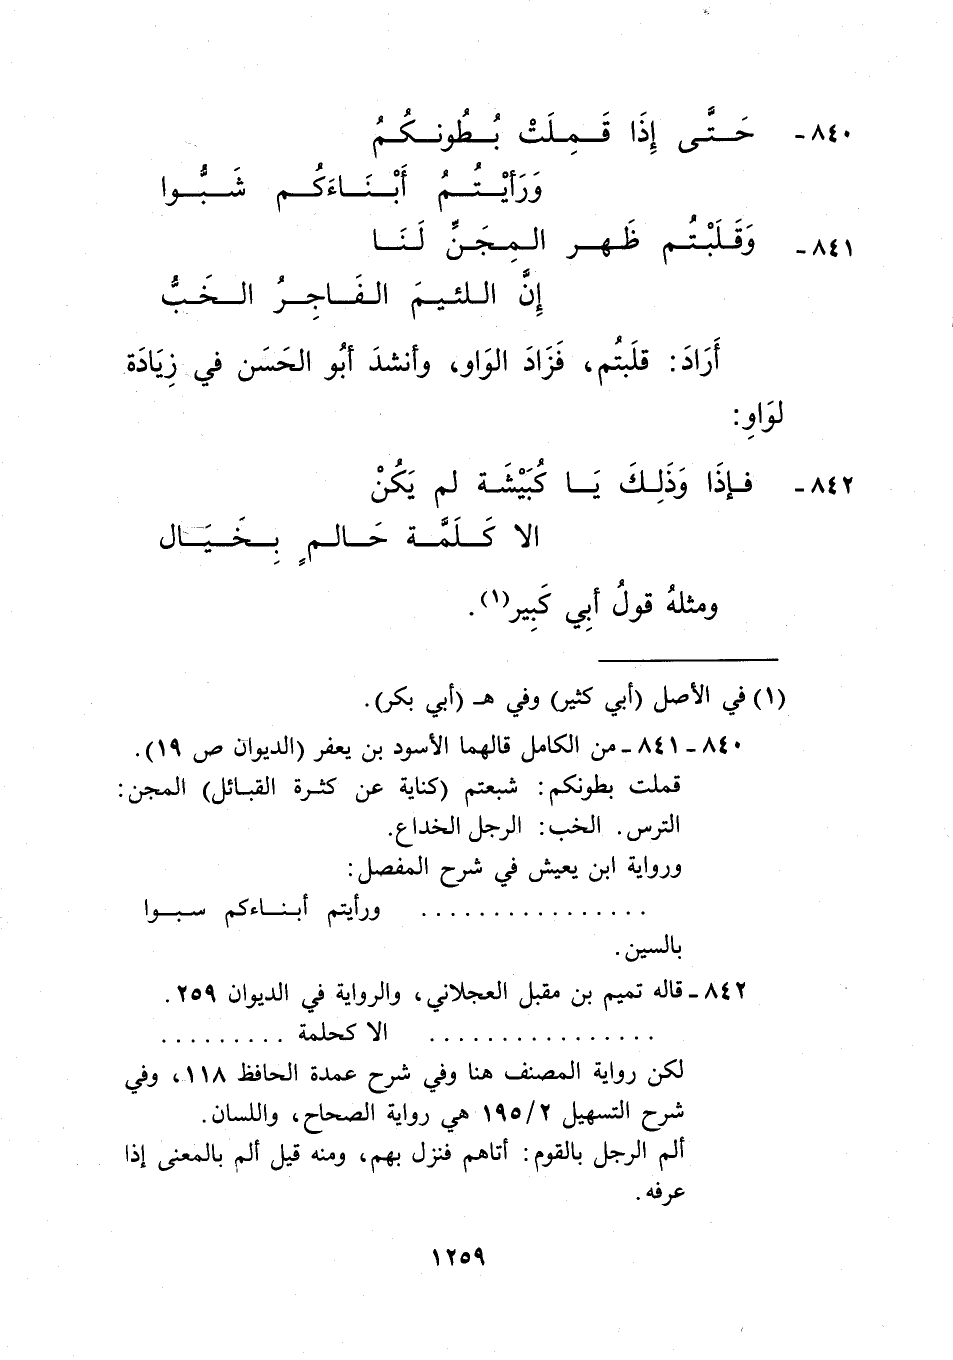 ٨٤٠- حَتَّى إِذَا قَمِلَتْ بُطُونكُمُ
وَرَأَيْتُمُ أَبْنَاءَكُم شَبُّوا
٨٤١- وَقَلَبْتُم ظَهر المِجَنِّ لَنَا
إِنَّ اللئيمَ الفَاجِرُ الخَبُّ
أَرَادَ: قلَبتُم، فَزَادَ الوَاو، وأنشدَ أبُو الحَسَن في زِيَادَة
لوَاوِ:
٨٤٢- فإذَا وَذَلِكَ يَا كُبَيْشَة لم يَكُنْ
الا كَلَمَّة حَالمٍ بِخَيَال
ومثلهُ قولُ أبِي كَبِير(١).
(١) في الأصل (أبي كثير) وفي هـ (أبي بكر).
٨٤٠- ٨٤١- من الكامل قالهما الأسود بن يعفر (الديوان ص ١٩).
قملت بطونكم: شبعتم (كناية عن كثرة القبائل) المجن:
الترس. الخب: الرجل الخداع.
ورواية ابن يعيش في شرح المفصل:
................ ورأيتم أبناءكم سبوا
بالسين.
٨٤٢- قاله تميم بن مقبل العجلاني، والرواية في الديوان ٢٥٩.
................ الا كحلمة .........
لكن رواية المصنف هنا وفي شرح عمدة الحافظ ١١٨، وفي
شرح التسهيل ١٩٥/٢ هي رواية الصحاح، واللسان.
ألم الرجل بالقوم: أتاهم فنزل بهم، ومنه قيل ألم بالمعنى إذا
عرفه.
١٢٥٩